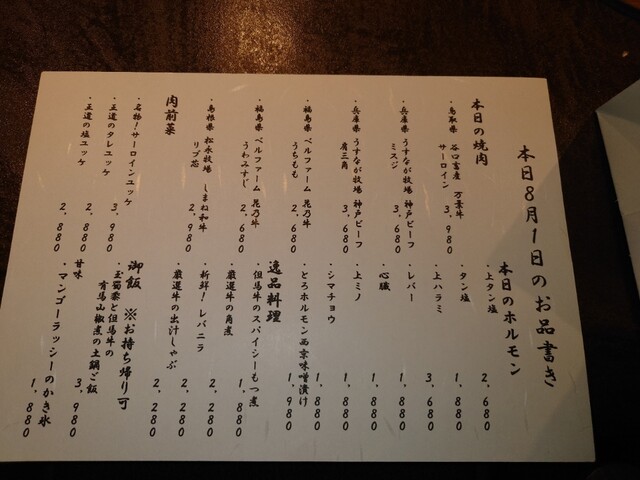 本日8月1日のお品書き
本日の焼肉
・鳥取県 谷口畜産 万葉牛
サーロイン 3,980
・兵庫県 うすなが牧場 神戸ビーフ
ミスジ 3,680
・兵庫県 うすなが牧場 神戸ビーフ
肩三角 3,680
・福島県 ベルファーム 花乃牛
うちもも 2,680
・福島県 ベルファーム 花乃牛
うわみすじ 2,680
・島根県 松永牧場 しまね和牛
リブ芯 2,980
肉前菜
・名物!サーロインユッケ 3,980
・王道のタレユッケ 2,880
・王道の塩ユッケ 2,880
本日のホルモン
・上タン塩 2,680
・タン塩 1,880
・上ハラミ 3,680
・レバー 1,880
・心臓 1,880
・上ミノ 1,880
・シマチョウ 1,880
・とろホルモン西京味噌漬け 1,980
逸品料理
・但馬牛のスパイシーもつ煮 1,880
・厳選牛の角煮 2,280
・新鮮!レバニラ 2,280
・厳選牛の出汁しゃぶ 2,280
御飯 ※お持ち帰り可
・玉蜀黍と但馬牛の
有馬山椒煮の土鍋ご飯 3,980
甘味
・マンゴーラッシーのかき氷 1,880